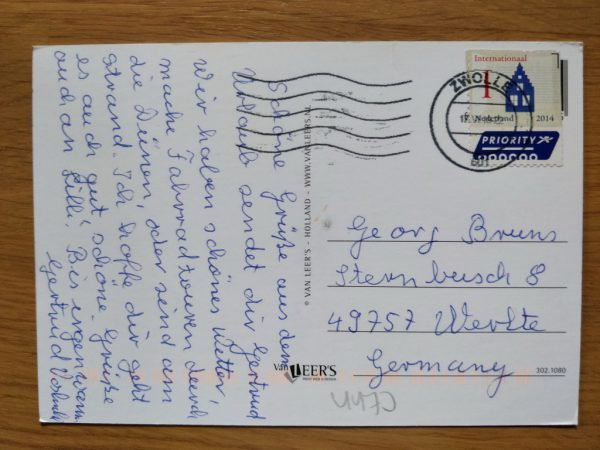 Schöne Grüße aus dem
Urlaub sendet dir Gertrud
Wir haben schönes Wetter,
mache Fahrradtouren durch
die Dünen, oder sind am
Strand. Ich hoffe dir geht
es auch gut! schöne Grüße
auch an Lilli! Bis irgenwann
Gertrud
© VAN LEER'S - HOLLAND - WWW.VANLEERS.NL
Internationaal
1
Nederland 2014
PRIORITY
ZWOLLE
Georg Bruns
Sternbusch 8
49757 Werlte
Germany
Van LEER'S
302.1080